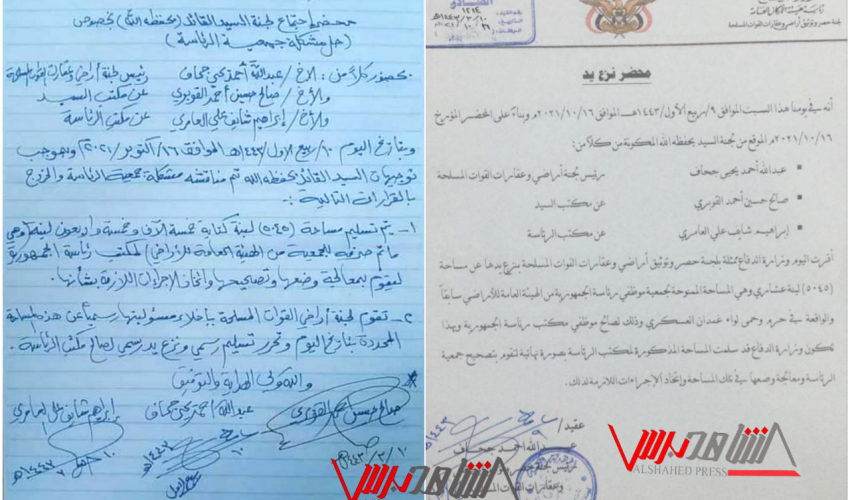 محضر اجتماع لجنة السيد القائد (يحفظه الله) بخصوص
(حل مشكلة جمعية الرئاسة)
بحضور كلاً من: الأخ / عبدالله أحمد يحيى جحاف رئيس لجنة أراضي وعقارات القوات المسلحة
والأخ / صالح حسين أحمد القوبري عن مكتب السيد
والأخ / إبراهيم شايف علي العامري عن مكتب الرئاسة
وبتاريخ اليوم ١٠/ربيع الأول/١٤٤٣هـ الموافق ١٦/أكتوبر/٢٠٢١م وبموجب
توجيهات السيد القائد يحفظه الله تم مناقشة مشكلة جمعية الرئاسة والخروج
بالقرارات التالية :-
١- تم تسليم مساحة (٥٠٤٥) لبنة كتابة خمسة آلاف وخمسة وأربعون لبنة (وهي
ما تم صرفه للجمعية من الهيئة العامة للأراضي) لمكتب رئاسة الجمهورية
لتقوم بمعالجة وضعها وتصحيحها واتخاذ الإجراءات اللازمة بشأنها.
٢- تقوم لجنة أراضي القوات المسلحة بإخلاء مسئوليتها رسمياً عن هذه المساحة
المحددة بتاريخ اليوم وتحرر تسليم رسمي ونزع يد رسمي لصالح مكتب الرئاسة.
والله ولي الهداية والتوفيق
صالح حسين أحمد القوبري عبدالله أحمد يحيى جحاف إبراهيم شايف علي العامري
شاهد برس
لجنة حصر وتوثيق أراضي وعقارات القوات المسلحة
محضر نزع يد
أنه في يومنا هذا السبت الموافق ٩/ربيع الأول/١٤٤٣هـ الموافق ٢٠٢١/١٠/١٦م وبناءً على المحضر المؤرخ
٢٠٢١/١٠/١٦م الموقع من لجنة السيد يحفظه الله المكونة من كلاً من:
عبدالله أحمد يحيى جحاف رئيس لجنة أراضي وعقارات القوات المسلحة
صالح حسين أحمد القوبري عن مكتب السيد
إبراهيم شايف علي العامري عن مكتب الرئاسة
أقرت اليوم وزارة الدفاع ممثلة بلجنة حصر وتوثيق أراضي وعقارات القوات المسلحة بنزع يدها عن مساحة
(٥٠٤٥) لبنة عشاري وهي المساحة الممنوحة لجمعية موظفي رئاسة الجمهورية من الهيئة العامة للأراضي سابقاً
والواقعة في حرم وحمى لواء غمدان العسكري وذلك لصالح موظفي مكتب رئاسة الجمهورية وبهذا
تكون وزارة الدفاع قد سلمت المساحة المذكورة لمكتب الرئاسة بصورة نهائية لتقوم بتصحيح جمعية
الرئاسة ومعالجة وضعها في تلك المساحة وإتخاذ الإجراءات اللازمة لذلك.
عقيد/
عبدالله أحمد جحاف
شاهد برس
ALSHAHED PRESS